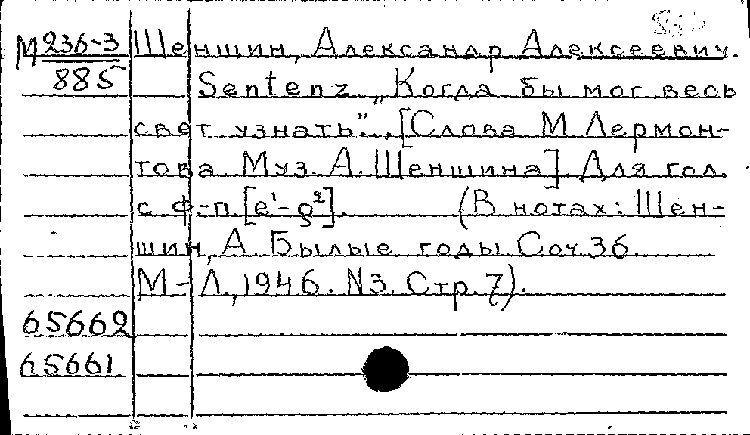 М 236-3 Шеншин, Александр Алексеевич.
885 Sentenz „Когда бы мог весь
свет узнать"... [Слова М. Лермон-
това Муз. А. Шеншина] Для гол.
с ф.-п. [e¹-g²]. (В нотах: Шен-
шин, А Былые годы. Соч. 36.
М.-Л., 1946. N3. Стр. 7).
65662
65661